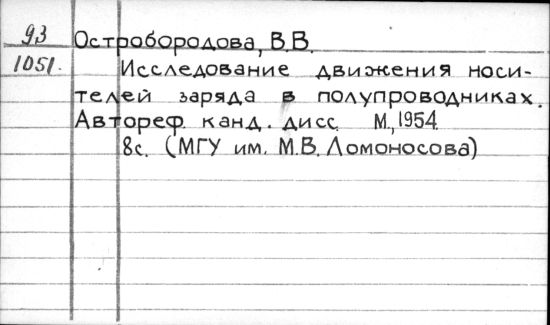 93 Остробородова, В.В.
1051. Исследование движения носи-
телей заряда в полупроводниках.
Автореф. канд. дисс. М., 1954
8с. (МГУ им. М.В. Ломоносова)